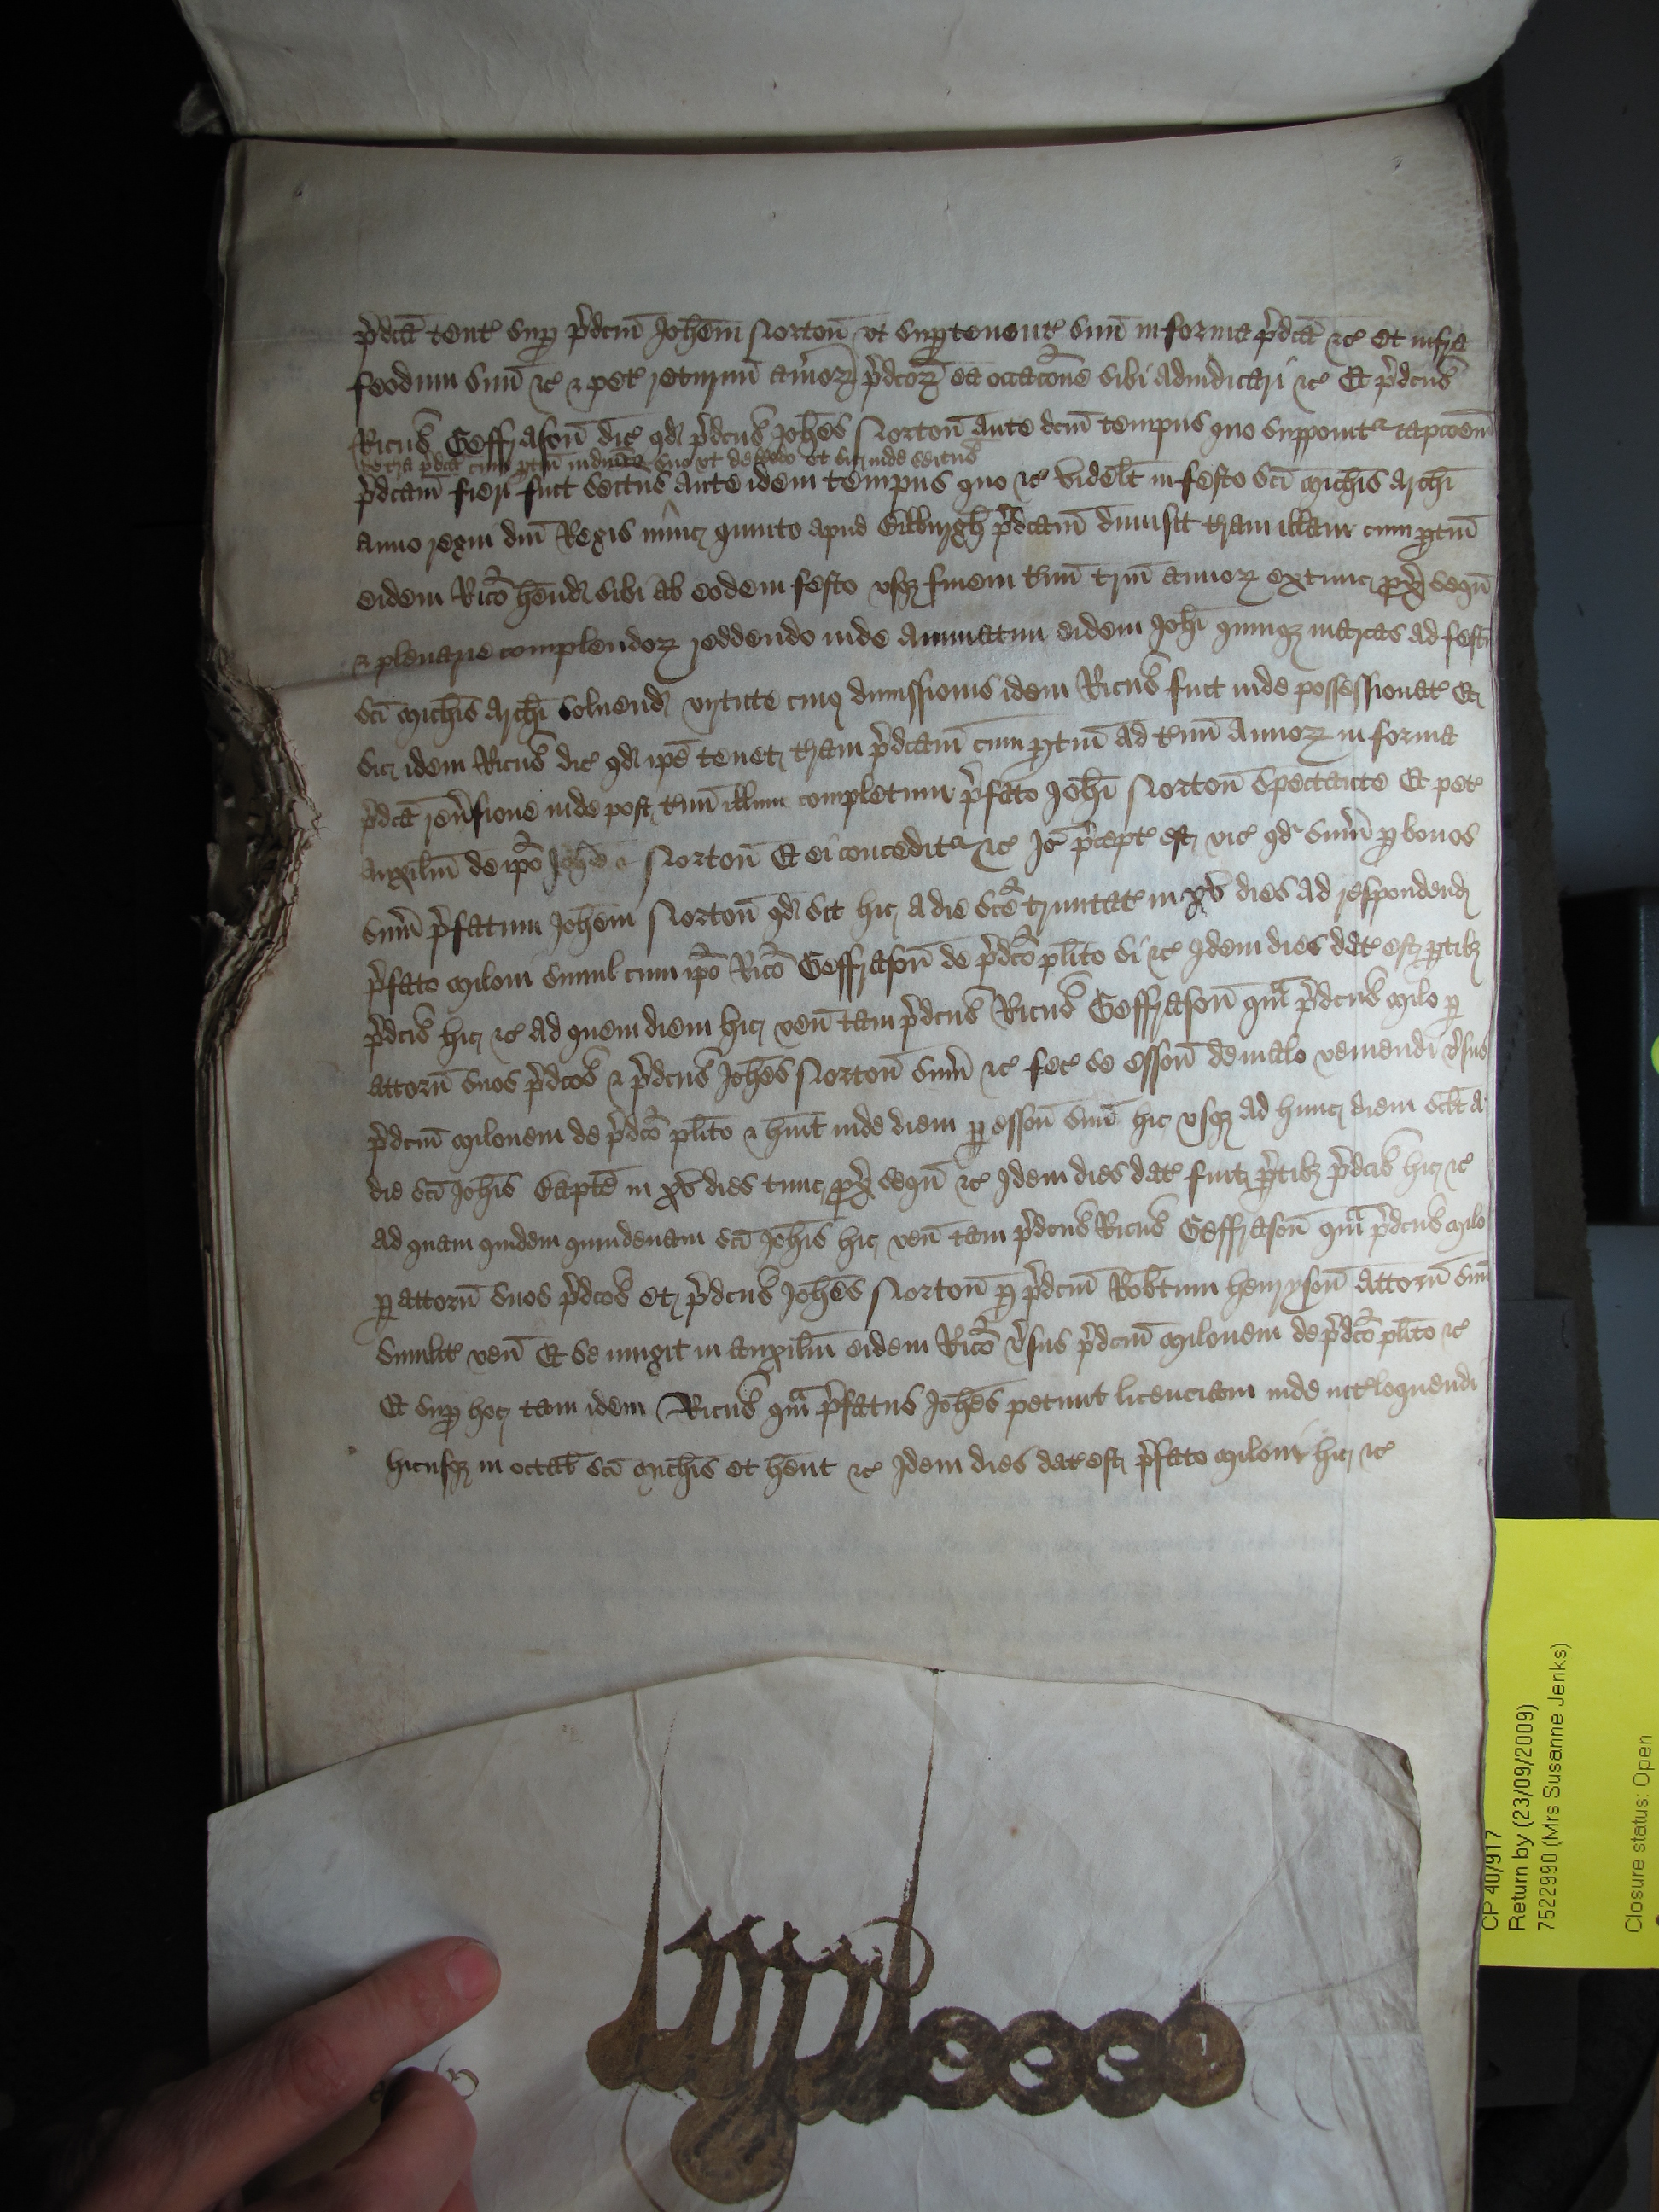 p̄dcā tent̄ sup p̄dcm̄ Joh̄em Norton̄ vt sup tenent̄ suū in forma p̄dcā &c̄ et infra
feodum suū &c̄ & pet̄ returnū aūioꝝ p̄dcoꝝ ea occac̄one sibi adiudicari &c̄ Et p̄dcus
Ricus Geffrason̄ dic̄ qd̄ p̄dcus Joh̄es Norton̄ ante dcm̄ tempus quo supponit͛ capc̄oem̄
terra p̄dcā cum ptin̄ in dn̄ico suo vt de feodo et sic inde seitus
p̄dcam̄ fieri fuit seitus ante idem tempus quo &c̄ videlt̄ in festo sc̄i Mich̄is Arch̄i
anno regni dn̄i Regis nunc quinto apud Ellburgh̄ p̄dcam̄ dimisit t̄ram illam cum ptin̄
eidem Rico hēnd̄ sibi ab eodem festo vsqꝫ finem t̄mī triū annoꝝ extunc px̄ sequn̄
& plenarie complendoꝝ reddendo inde annuatim eidem Joh̄i quinqꝫ marcas ad fest̄
sc̄i Mich̄is Arch̄i soluend̄ virtute cuiꝰ dimissionis idem Ricus fuit inde possessionat̄ Et
sic idem Ricus dic̄ qd̄ ip̄e tenet t̄ram p̄dcam̄ cum ptin̄ ad t̄mīn annoꝝ in forma
p̄dcā reūsione inde post t̄mīn illum completum p̄fato Joh̄i Norton̄ spectante Et pet̄
auxiliū de ip̄o Joh̄e Norton̄ Et ei conceditᷣ &c̄ Jō p̄cept̄ est vic̄ qd̄ sum̄ p bonos
sum̄ p̄fatum Joh̄em Norton̄ qd̄ sit hic a die sc̄e trinitat̄ in xv dies ad respondend̄
p̄fato Miloni simul cum ip̄o Rico Geffrason̄ de p̄dco plīto si &c̄ Idem dies dat̄ est ptibꝫ
p̄dcis hic &c̄ ad quem diem hic ven̄ tam p̄dcus Ricus Geffrason̄ qm̄ p̄dcus Milo p
attorn̄ suos p̄dcos & p̄dcus Joh̄es Norton̄ sum̄ &c̄ fec̄ se esson̄ de malo veniendi v̄sus
p̄dcm̄ Milonem de p̄dco plīto & hūit inde diem p esson̄ suū hic vsqꝫ ad hunc diem scl̄t a
die sc̄i Joh̄is Bapt̄e in xv dies tunc px̄ sequn̄ &c̄ Idem dies dat̄ fuit ptibꝫ p̄dcis hic &c̄
ad quam quidem quindenam sc̄i Joh̄is hic ven̄ tam p̄dcus Ricus Geffrason̄ qm̄ p̄dcus Milo
p attorn̄ suos p̄dcos et p̄dcus Joh̄es Norton̄ p p̄dcm̄ Rob̄tum henryson̄ attorn̄ suū
similit̄ ven̄ Et se iungit in auxiliū eidem Rico v̄sus p̄dcm̄ Milonem de p̄dco plīto &c̄
Et sup hoc tam idem Ricus qm̄ p̄fatus Joh̄es petunt licenciam inde int̄loquendi
hicusqꝫ in octab̄ sc̄i Mich̄is et hēnt &c̄ Idem dies dat̄ est p̄fato Miloni hic &c̄
CP 40/917
Return by (23/09/2009)
7522990 (Mrs Susanne Jenks)
Closure status: Open